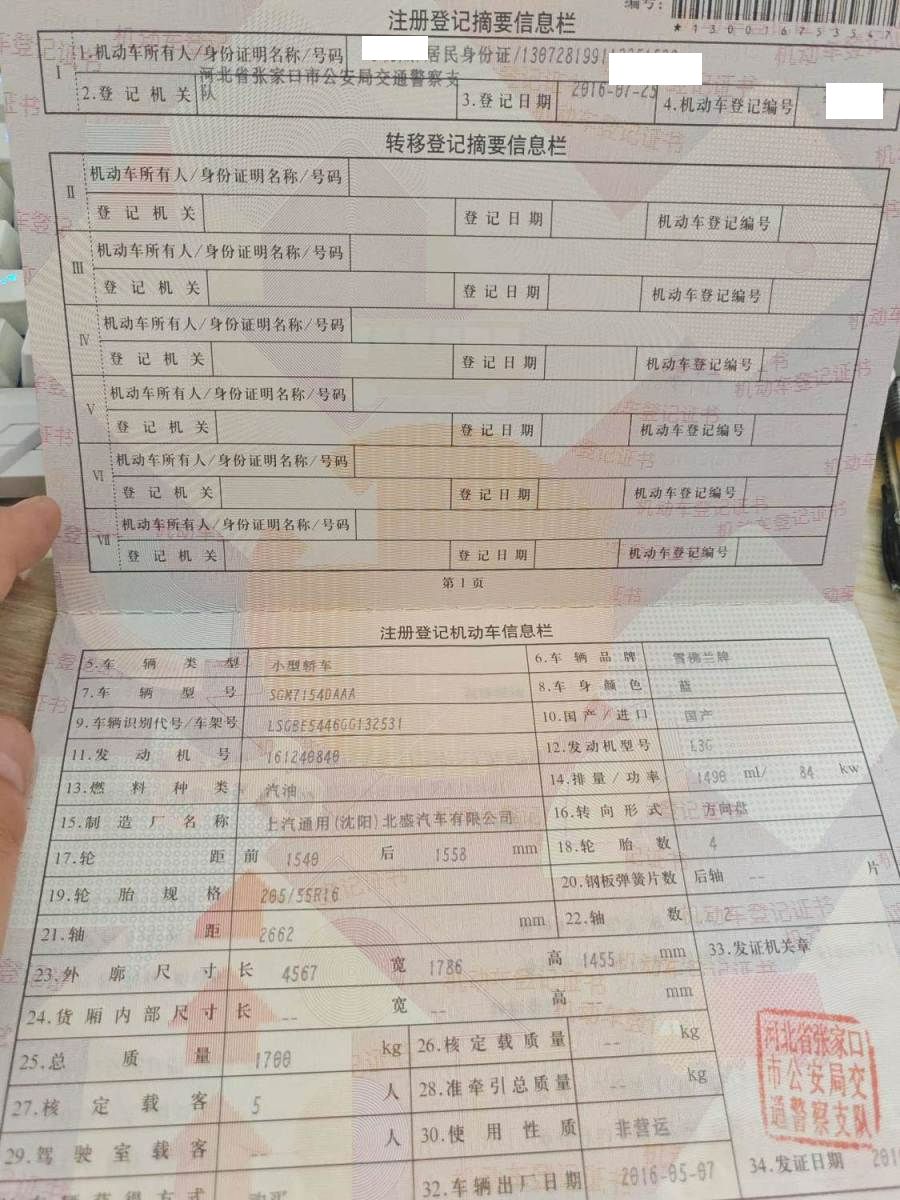 注册登记摘要信息栏
编号:
*130016753547
I
1.机动车所有人/身份证明名称/号码 居民身份证/1307281991
2.登记机关 河北省张家口市公安局交通警察支队 3.登记日期 2016-07-25 4.机动车登记编号
转移登记摘要信息栏
II 机动车所有人/身份证明名称/号码
登记机关 登记日期 机动车登记编号
III 机动车所有人/身份证明名称/号码
登记机关 登记日期 机动车登记编号
IV 机动车所有人/身份证明名称/号码
登记机关 登记日期 机动车登记编号
V 机动车所有人/身份证明名称/号码
登记机关 登记日期 机动车登记编号
VI 机动车所有人/身份证明名称/号码
登记机关 登记日期 机动车登记编号
VII 机动车所有人/身份证明名称/号码
登记机关 登记日期 机动车登记编号
第1页
注册登记机动车信息栏
5.车辆类型 小型轿车 6.车辆品牌 雪佛兰牌
7.车辆型号 SGM7154DAAA 8.车身颜色 蓝
9.车辆识别代号/车架号 LSGBE5446GG132531 10.国产/进口 国产
11.发动机号 161240840 12.发动机型号 L3G
13.燃料种类 汽油 14.排量/功率 1490 ml/ 84 kw
15.制造厂名称 上汽通用(沈阳)北盛汽车有限公司 16.转向形式 方向盘
17.轮距 前 1540 后 1558 mm 18.轮胎数 4
19.轮胎规格 205/55R16 20.钢板弹簧片数 后轴 -- 片
21.轴距 2662 mm 22.轴数 2
23.外廓尺寸 长 4567 宽 1786 高 1455 mm 33.发证机关章
24.货厢内部尺寸 长 -- 宽 -- 高 -- mm
25.总质量 1700 kg 26.核定载质量 -- kg
27.核定载客 5 人 28.准牵引总质量 -- kg
29.驾驶室载客 -- 人 30.使用性质 非营运
河北省张家口
市公安局交
通警察支队
车辆获得方式 购买 32.车辆出厂日期 2016-05-07 34.发证日期 201